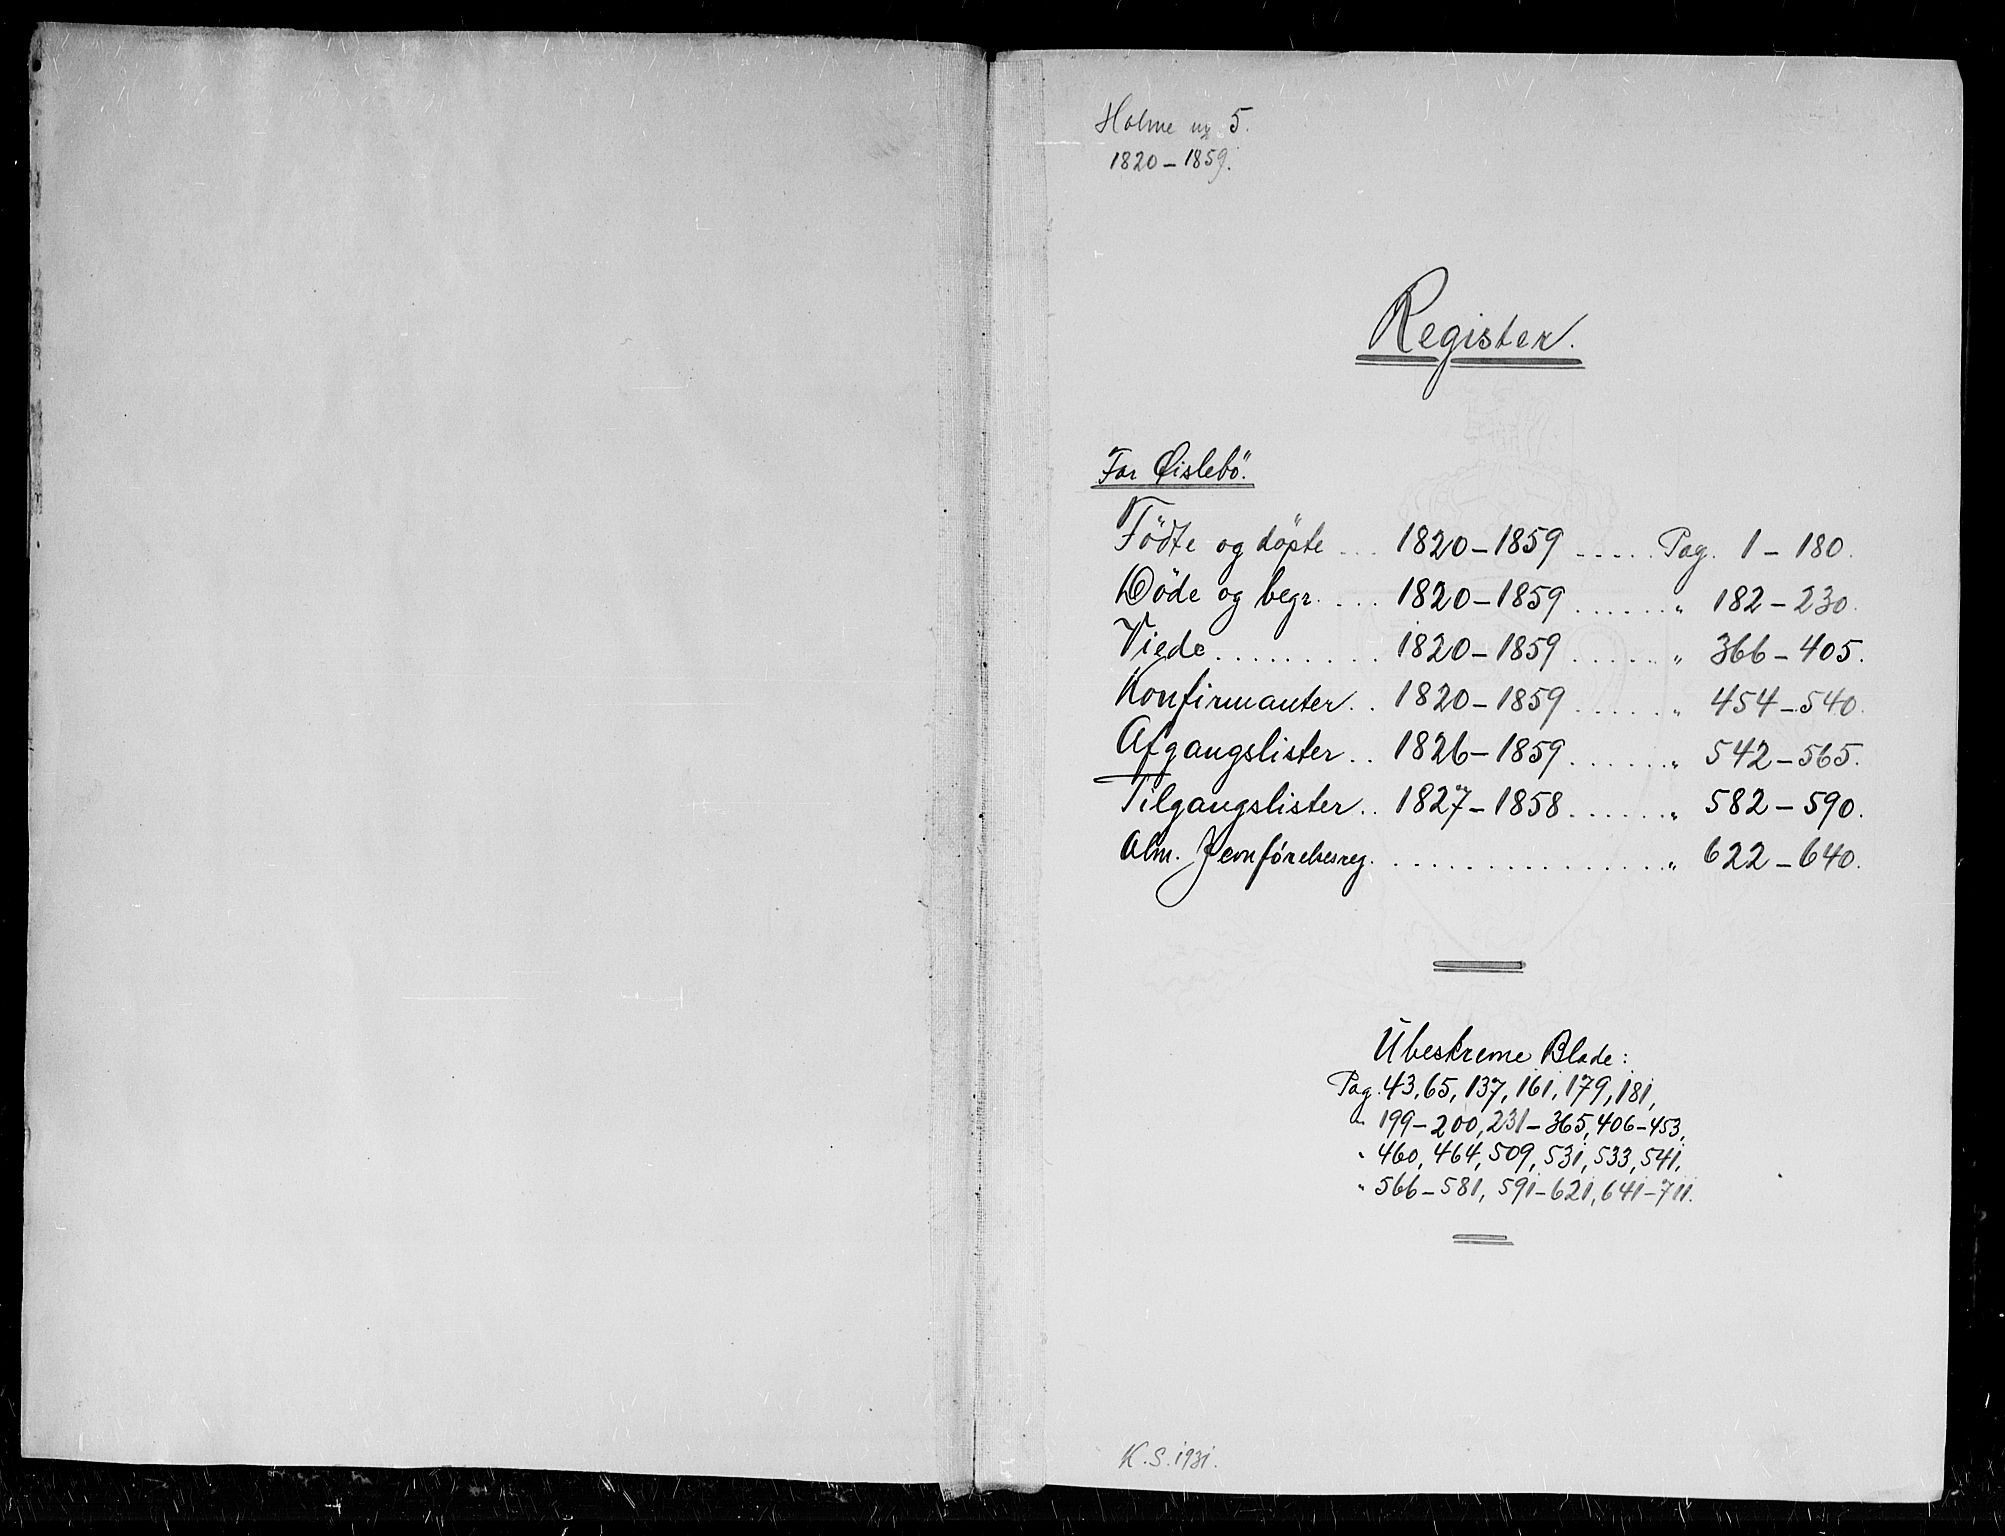 Holme nr 5.
1820 - 1859.
Register.
For Øislebö.
Födte og döpte ... 1820 - 1859 ..... Pag. 1 - 180.
Döde og begr. ... 1820 - 1859 ...... " 182 - 230.
Viede ......... 1820 - 1859 ...... " 366 - 405.
Konfirmanter .. 1820 - 1859 ...... " 454 - 540.
Afgangslister .. 1826 - 1859 ...... " 542 - 565.
Tilgangslister .. 1827 - 1858 ...... " 582 - 590.
Alm. Jevnförelsesreg. ................ " 622 - 640.
Ubeskrevne Blade:
Pag. 43, 65, 137, 161, 179, 181,
" 199 - 200, 231 - 365, 406 - 453,
" 460, 464, 509, 531, 533, 541,
" 566 - 581, 591 - 621, 641 - 711.
K. S. 1931.